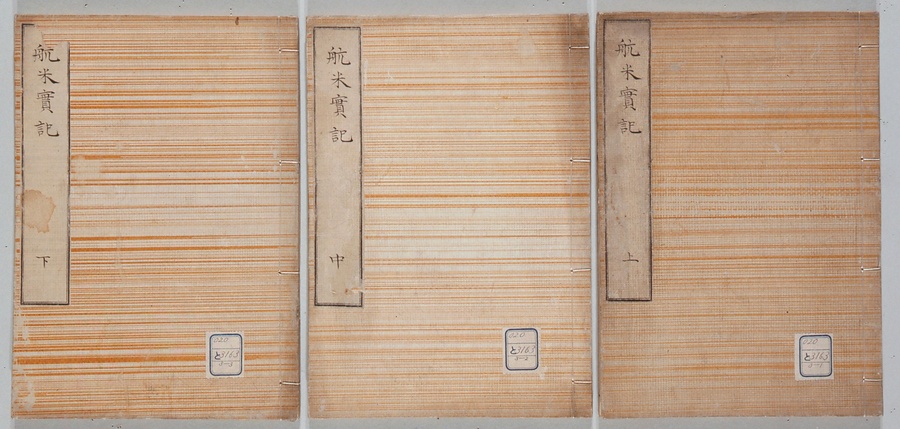 航米實記
上
020
と3163
3-1
航米實記
中
020
と3163
3-2
航米實記
下
020
と3163
3-3